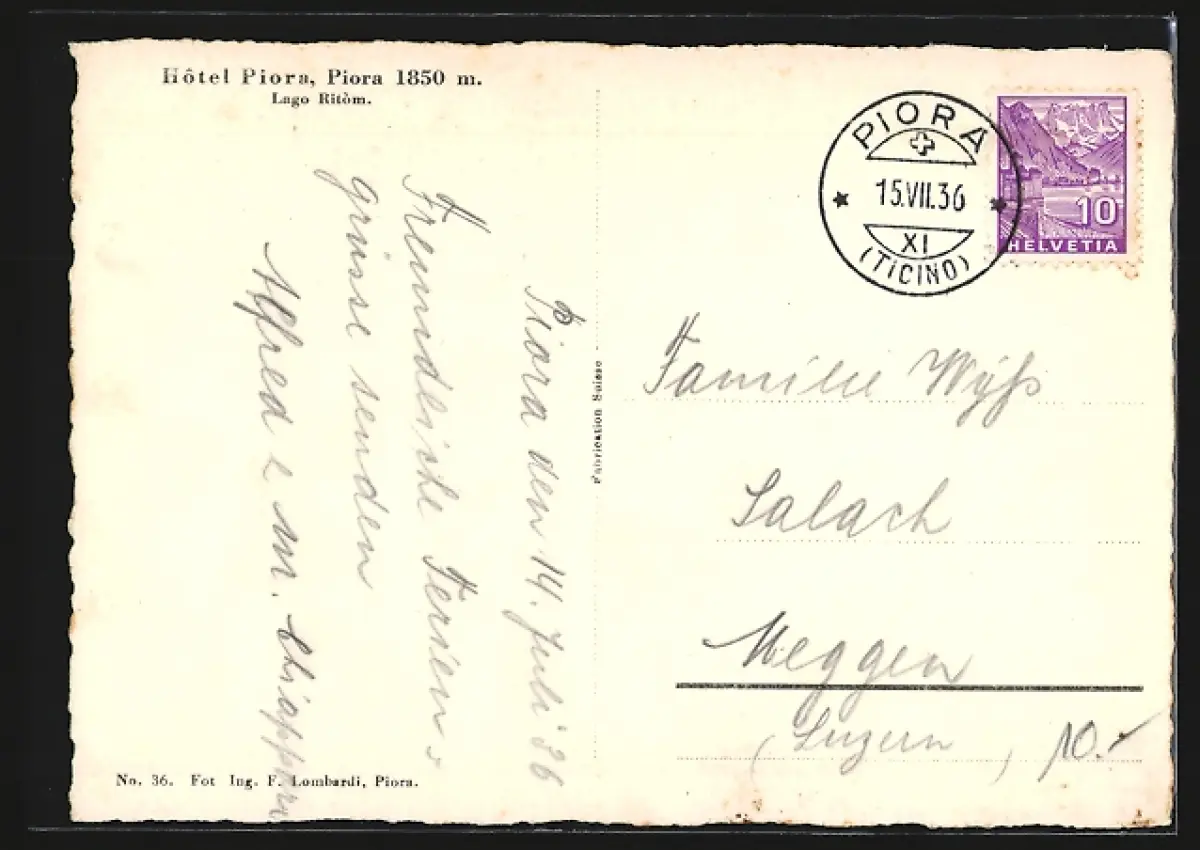 Hôtel Piora, Piora 1850 m.
Lago Ritòm.
Piora den 14. Juli 36
Freundliche Ferien=
grüsse senden
Alfred & M.
No. 36. Fot Ing. F. Lombardi, Piora.
Fabrication Suisse
PIORA
15.VII.36
XI
(TICINO)
10
HELVETIA
Familie Wyß
Salach
Meggen
(Luzern)
10.-